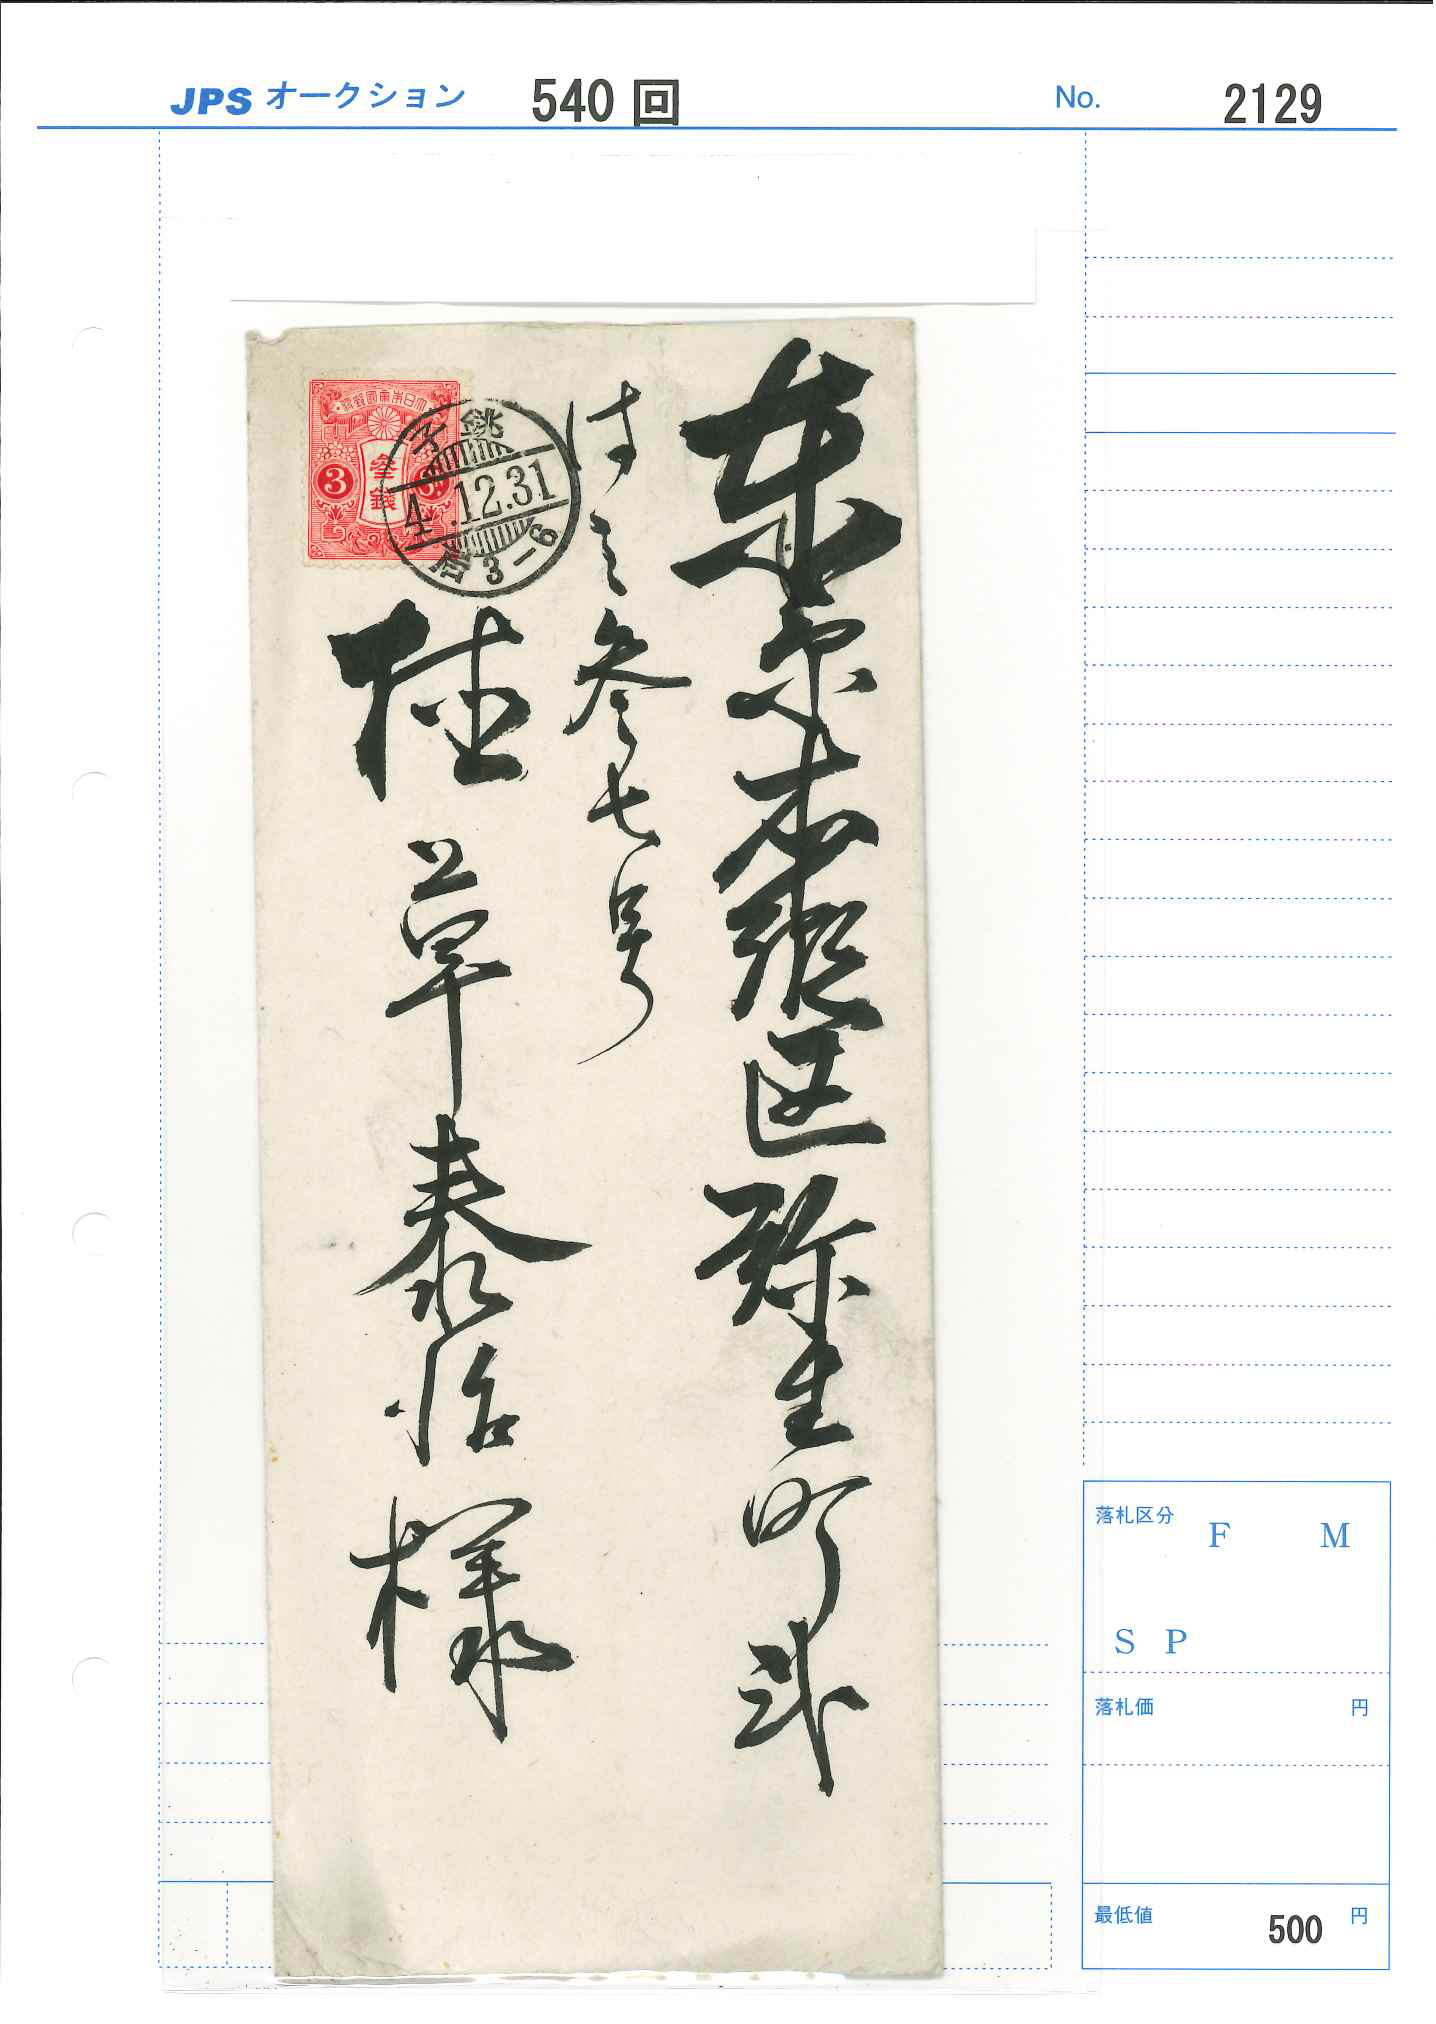 JPS オークション 540 回 No. 2129
大日本帝國郵便
参錢
3
銚子
4.12.31
后 3-6
東京本郷区弥生町
参七号
草泰治様
落札区分 F M
S P
落札価 円
最低値 500 円